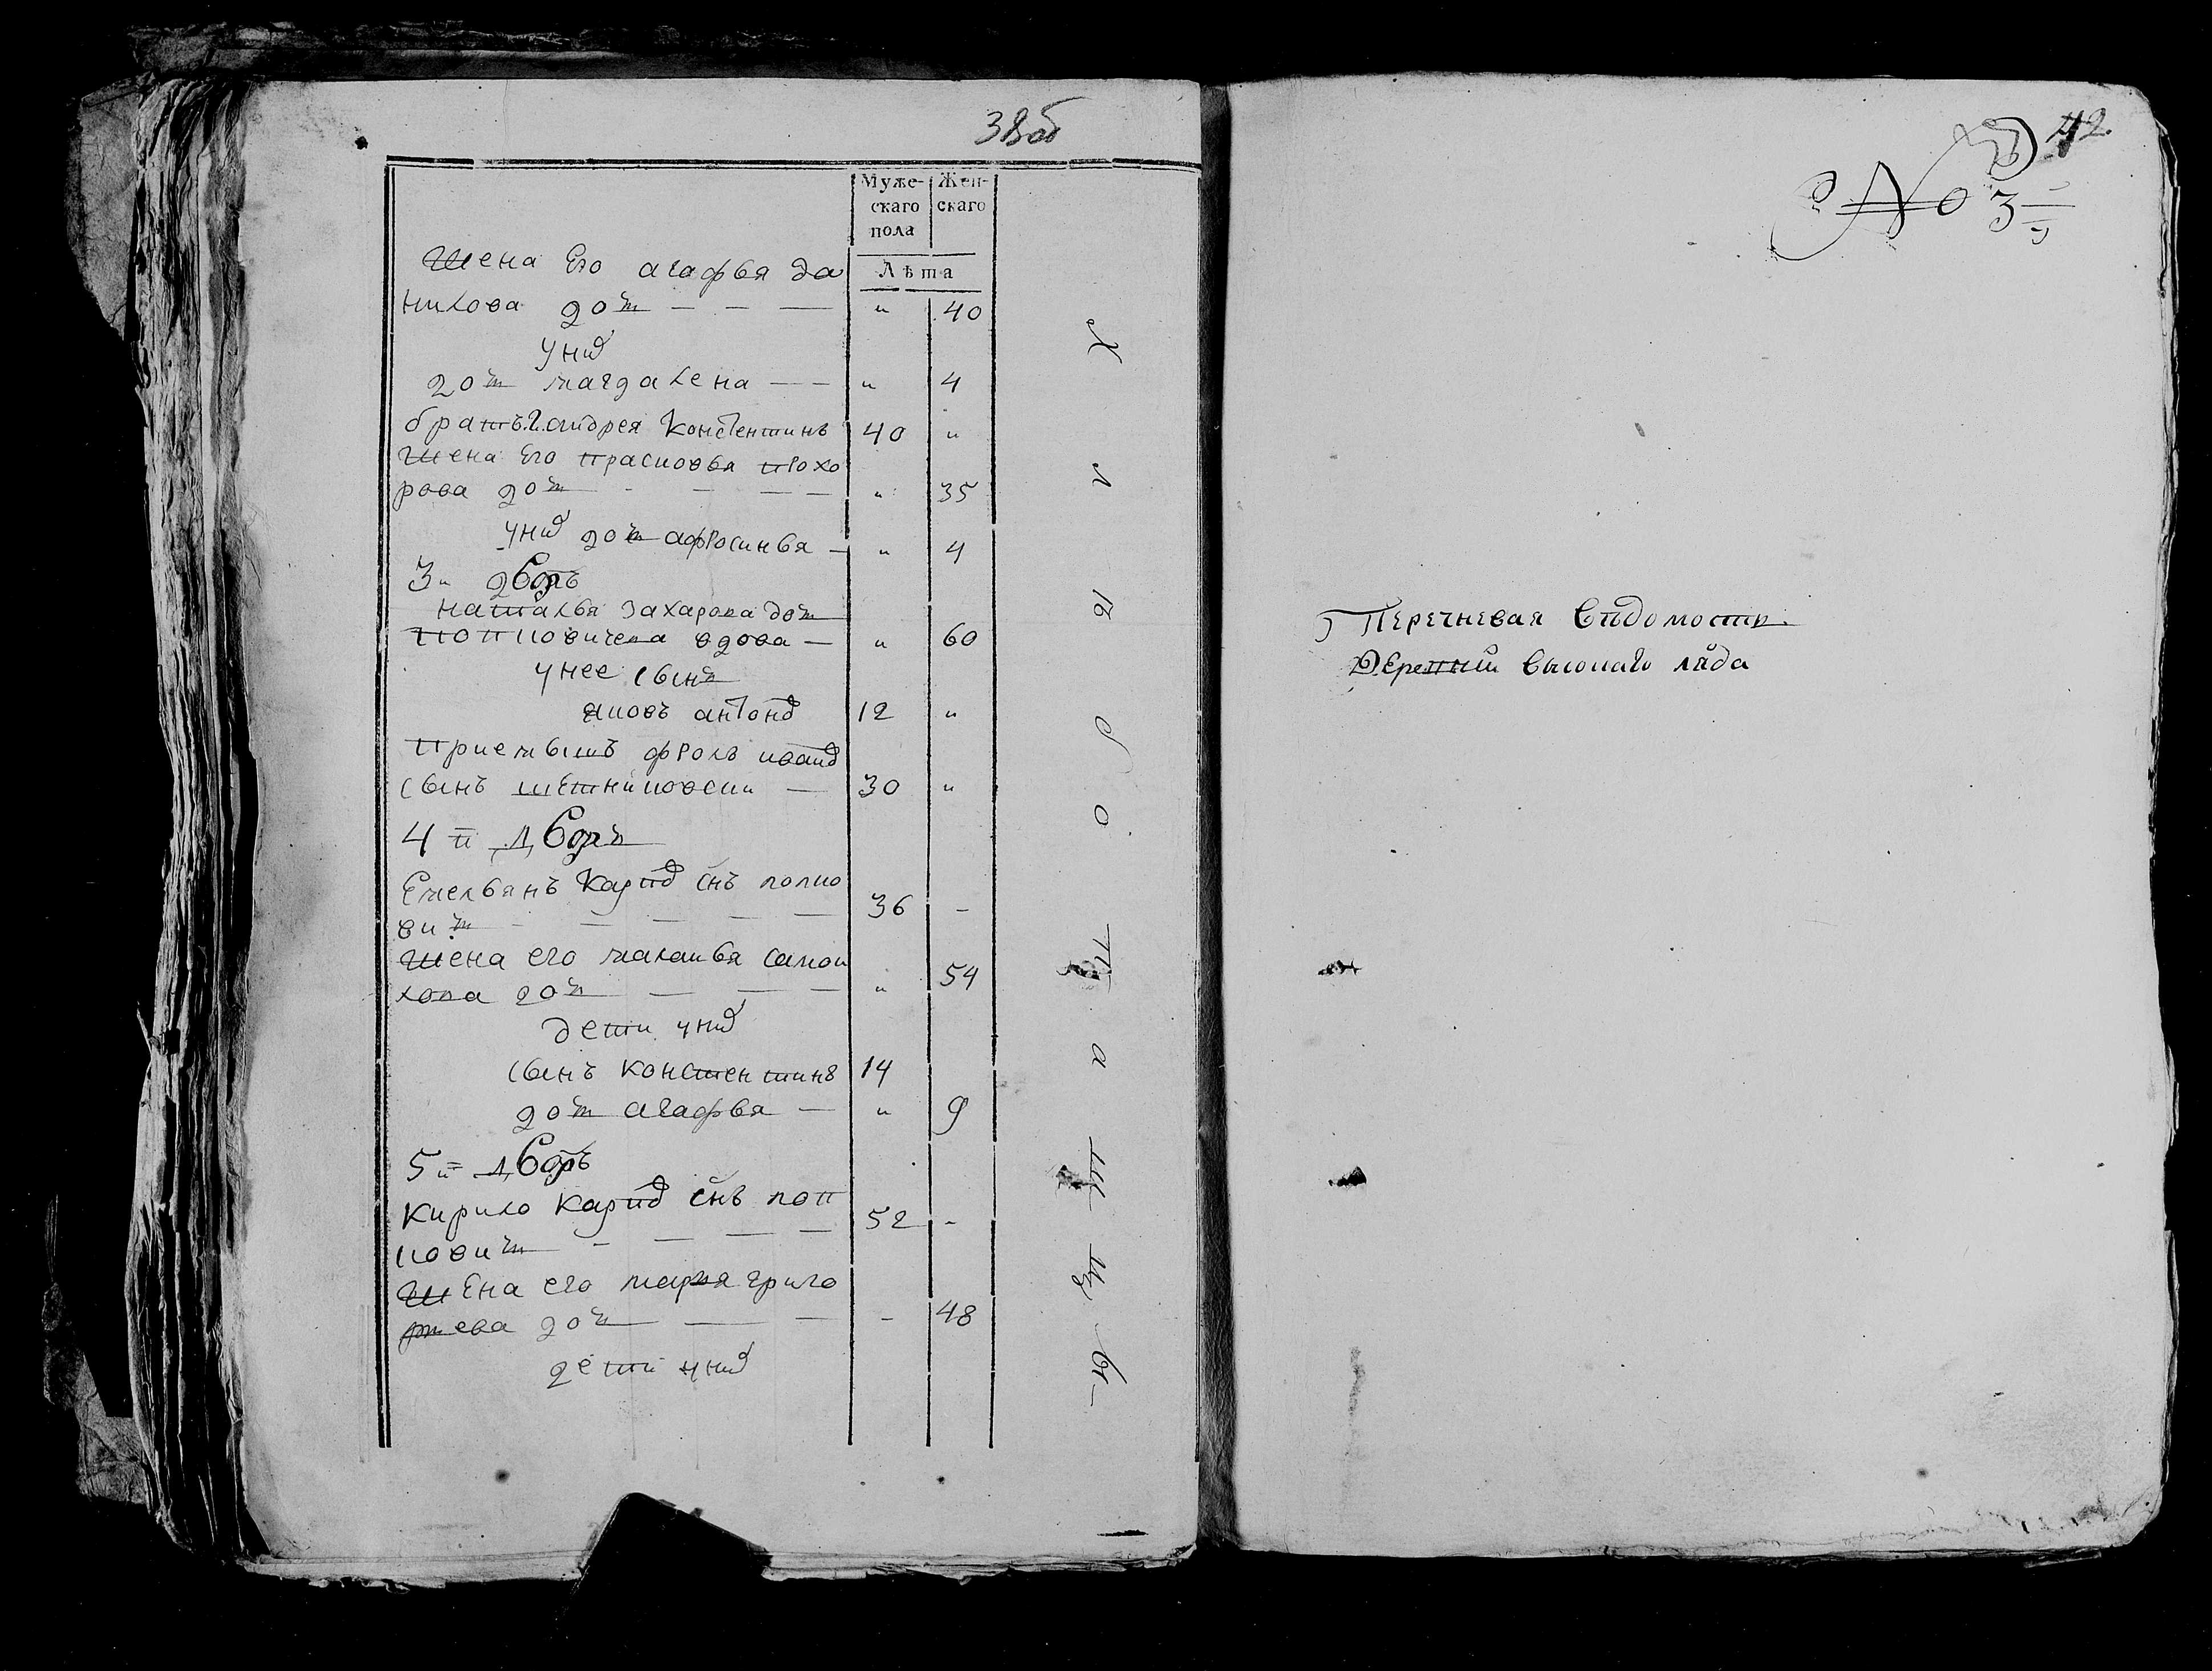 38об
Муже- Жен-
скаго скаго
пола
Лѣта
жена его агафья да
нилова доч — — — „ 40
у них
доч магдалена — — „ 4
братъ андрея Констентинъ 40 „
жена его прасковья прохо
рова доч — — — „ 35
у них доч афросинья — „ 4
3й дворъ
наталья захарова доч
попковичева вдова — „ 60
у нее сынъ
яковъ антонов 12 „
приемышъ фролъ иванов
сынъ — 30 „
4й дворъ
Емельянъ Карпов снъ попко
вич — — — — 36 -
жена его маланья самои
лова доч — — — „ 54
дети у них
сынъ констентинъ 14
доч агафья — „ 9
5й дворъ
Кирило Карпов снъ поп
кович — — — — 52 -
жена его марья григо
рьева доч — — - 48
дети у них
42
№ 3й
Перечневая вѣдомость
Деревни высокаго ляда